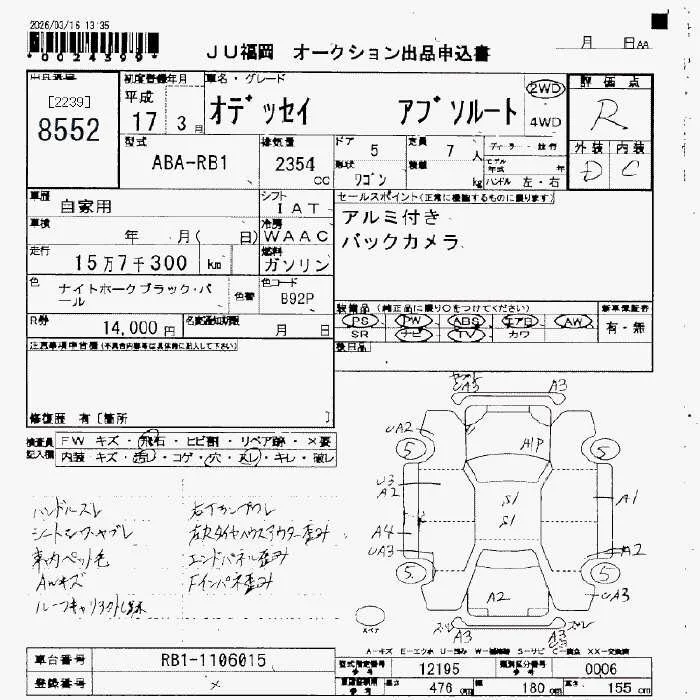 2026/03/16 13:35
*0024399*
JU福岡 オークション出品申込書
月 日AA
[2239]
8552
初度登録年月
平成
17 3月
車名・グレード
オデッセイ アブソルート
2WD
4WD
評価点
R
外装 内装
D C
型式
ABA-RB1
排気量
2354
cc
ドア
5
形状
ワゴン
定員
7人
積載
kg
ハンドル 左・右
車歴
自家用
シフト
IAT
車検
年 月( 日)
冷房
WAAC
走行
15万7千300 km
燃料
ガソリン
色
ナイトホークブラック・パール
色替
色コード
B92P
R券
14,000円
名変通知期限
月 日
セールスポイント(正常に機能するものに限ります)
アルミ付き
バックカメラ
装備品 (純正品に限り○をつけてください)
PS PW ABS エアB AW
SR ナビ TV カワ
新車保証書
有・無
後日品
注意事項申告欄(不具合内容等は具体的に記入して下さい)
修復歴 有[箇所 ]
検査員
記入欄
FW キズ・飛石・ヒビ割・リペア跡・×要
内装 キズ・汚レ・コゲ・穴・スレ・キレ・破レ
ハンドルスレ
シートシワ・ヤブレ
車内ペット色
AWキズ
エンドパネル歪み
Fインパネ歪み
UA3 A3
UA2
5 5
A/P
U3
A2
S1
S1
A1
A4
UA3
A2
5 5
UA3
A2
スペア
ズレ ズレ
A3 A3
U3
A-キズ E-エクボ U-凹み W-補修跡 S-サビ C-腐食 XX-交換済
車台番号
RB1-1106015
登録番号
メ
型式指定番号
参考
12195
類別区分番号
参考
0006
長さ
476 cm
幅
180 cm
高さ
155 cm